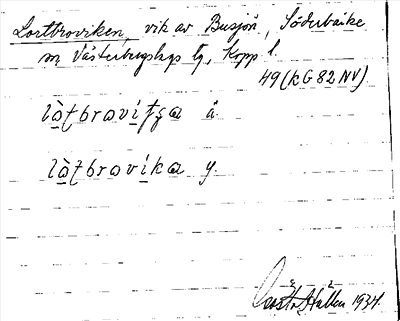 Lortbroviken, vik av Busjön, Söderbärke
sn Västerbergslags tg, Kopp l.
49 (kG 82 NV)
lòtbravítsa å.
lòtbravíka y.
Gösta Hallén 1934.